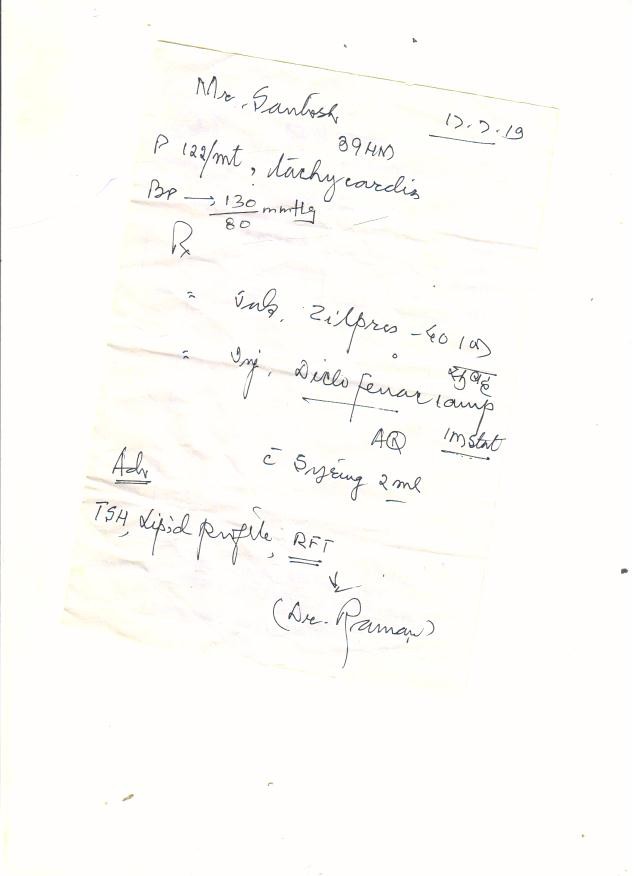 Mr. Santosh
17.7.19
39HM
P 122/mt, tachycardia
BP → 130/80 mmHg
Rx
= Tab. Zilpres - 40 1 OD
सुबह
= Inj. Diclofenac 1 amp
AQ IM stat
c̄ Syring 2 ml
Adv
TSH, Lipid profile, RFT
(Dr. Raman)